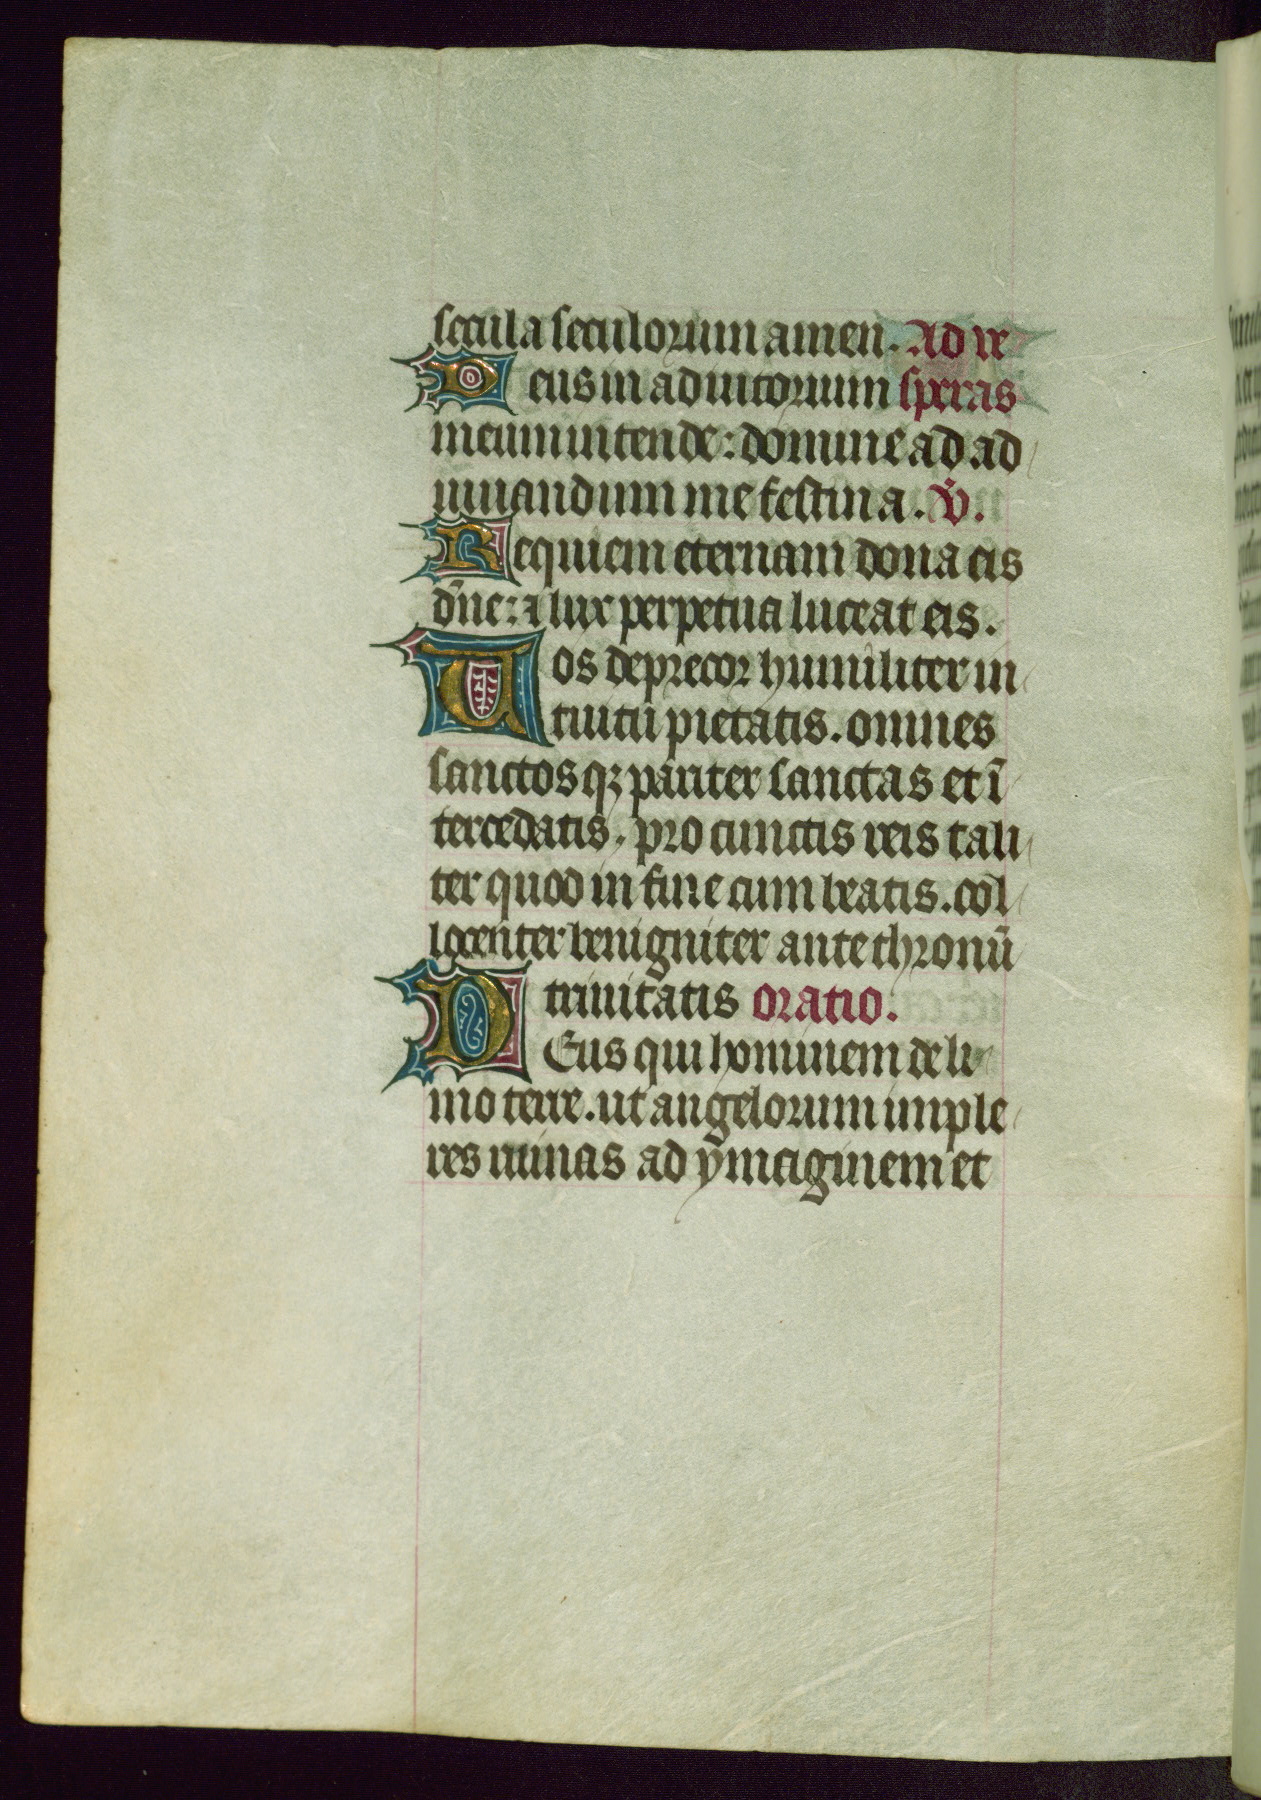 secula seculorum amen. Ad ve
Deus in adiutorium speras
meum intende: domine ad ad
iuuandum me festina. V̇.
Requiem eternam dona eis
dn̄e: ⁊ lux perpetua luceat eis.
Uos deprecor humiliter in
tiutū pietatis. omnes
sanctos qꝫ pariter sanctas et ī
tercedatis. pro cunctis reis tali
ter quod in fine cum beatis. col
locenter benigniter ante thronū
trinitatis oratio.
DEus qui hominem de li
mo terre. ut angelorum imple
res ruinas ad ymaginem et